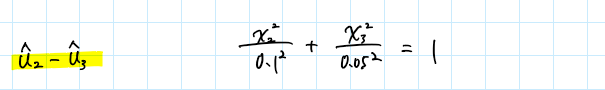 û₂ - û₃
x₂²/0.1² + x₃²/0.05² = 1